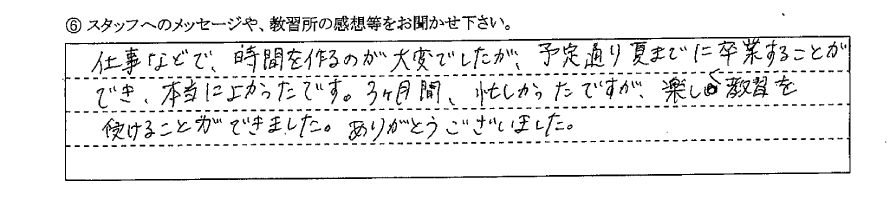 ⑥ スタッフへのメッセージや、教習所の感想等をお聞かせ下さい。
仕事などで、時間を作るのが大変でしたが、予定通り夏までに卒業することが
でき、本当によかったです。3ヶ月間、忙しかったですが、楽しく教習を
受けることができました。ありがとうございました。